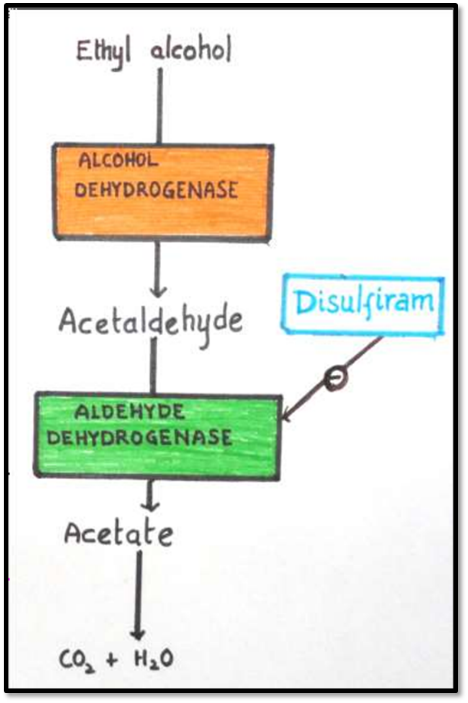 Ethyl alcohol
ALCOHOL
DEHYDROGENASE
Acetaldehyde
Disulfiram
⊖
ALDEHYDE
DEHYDROGENASE
Acetate
CO₂ + H₂O